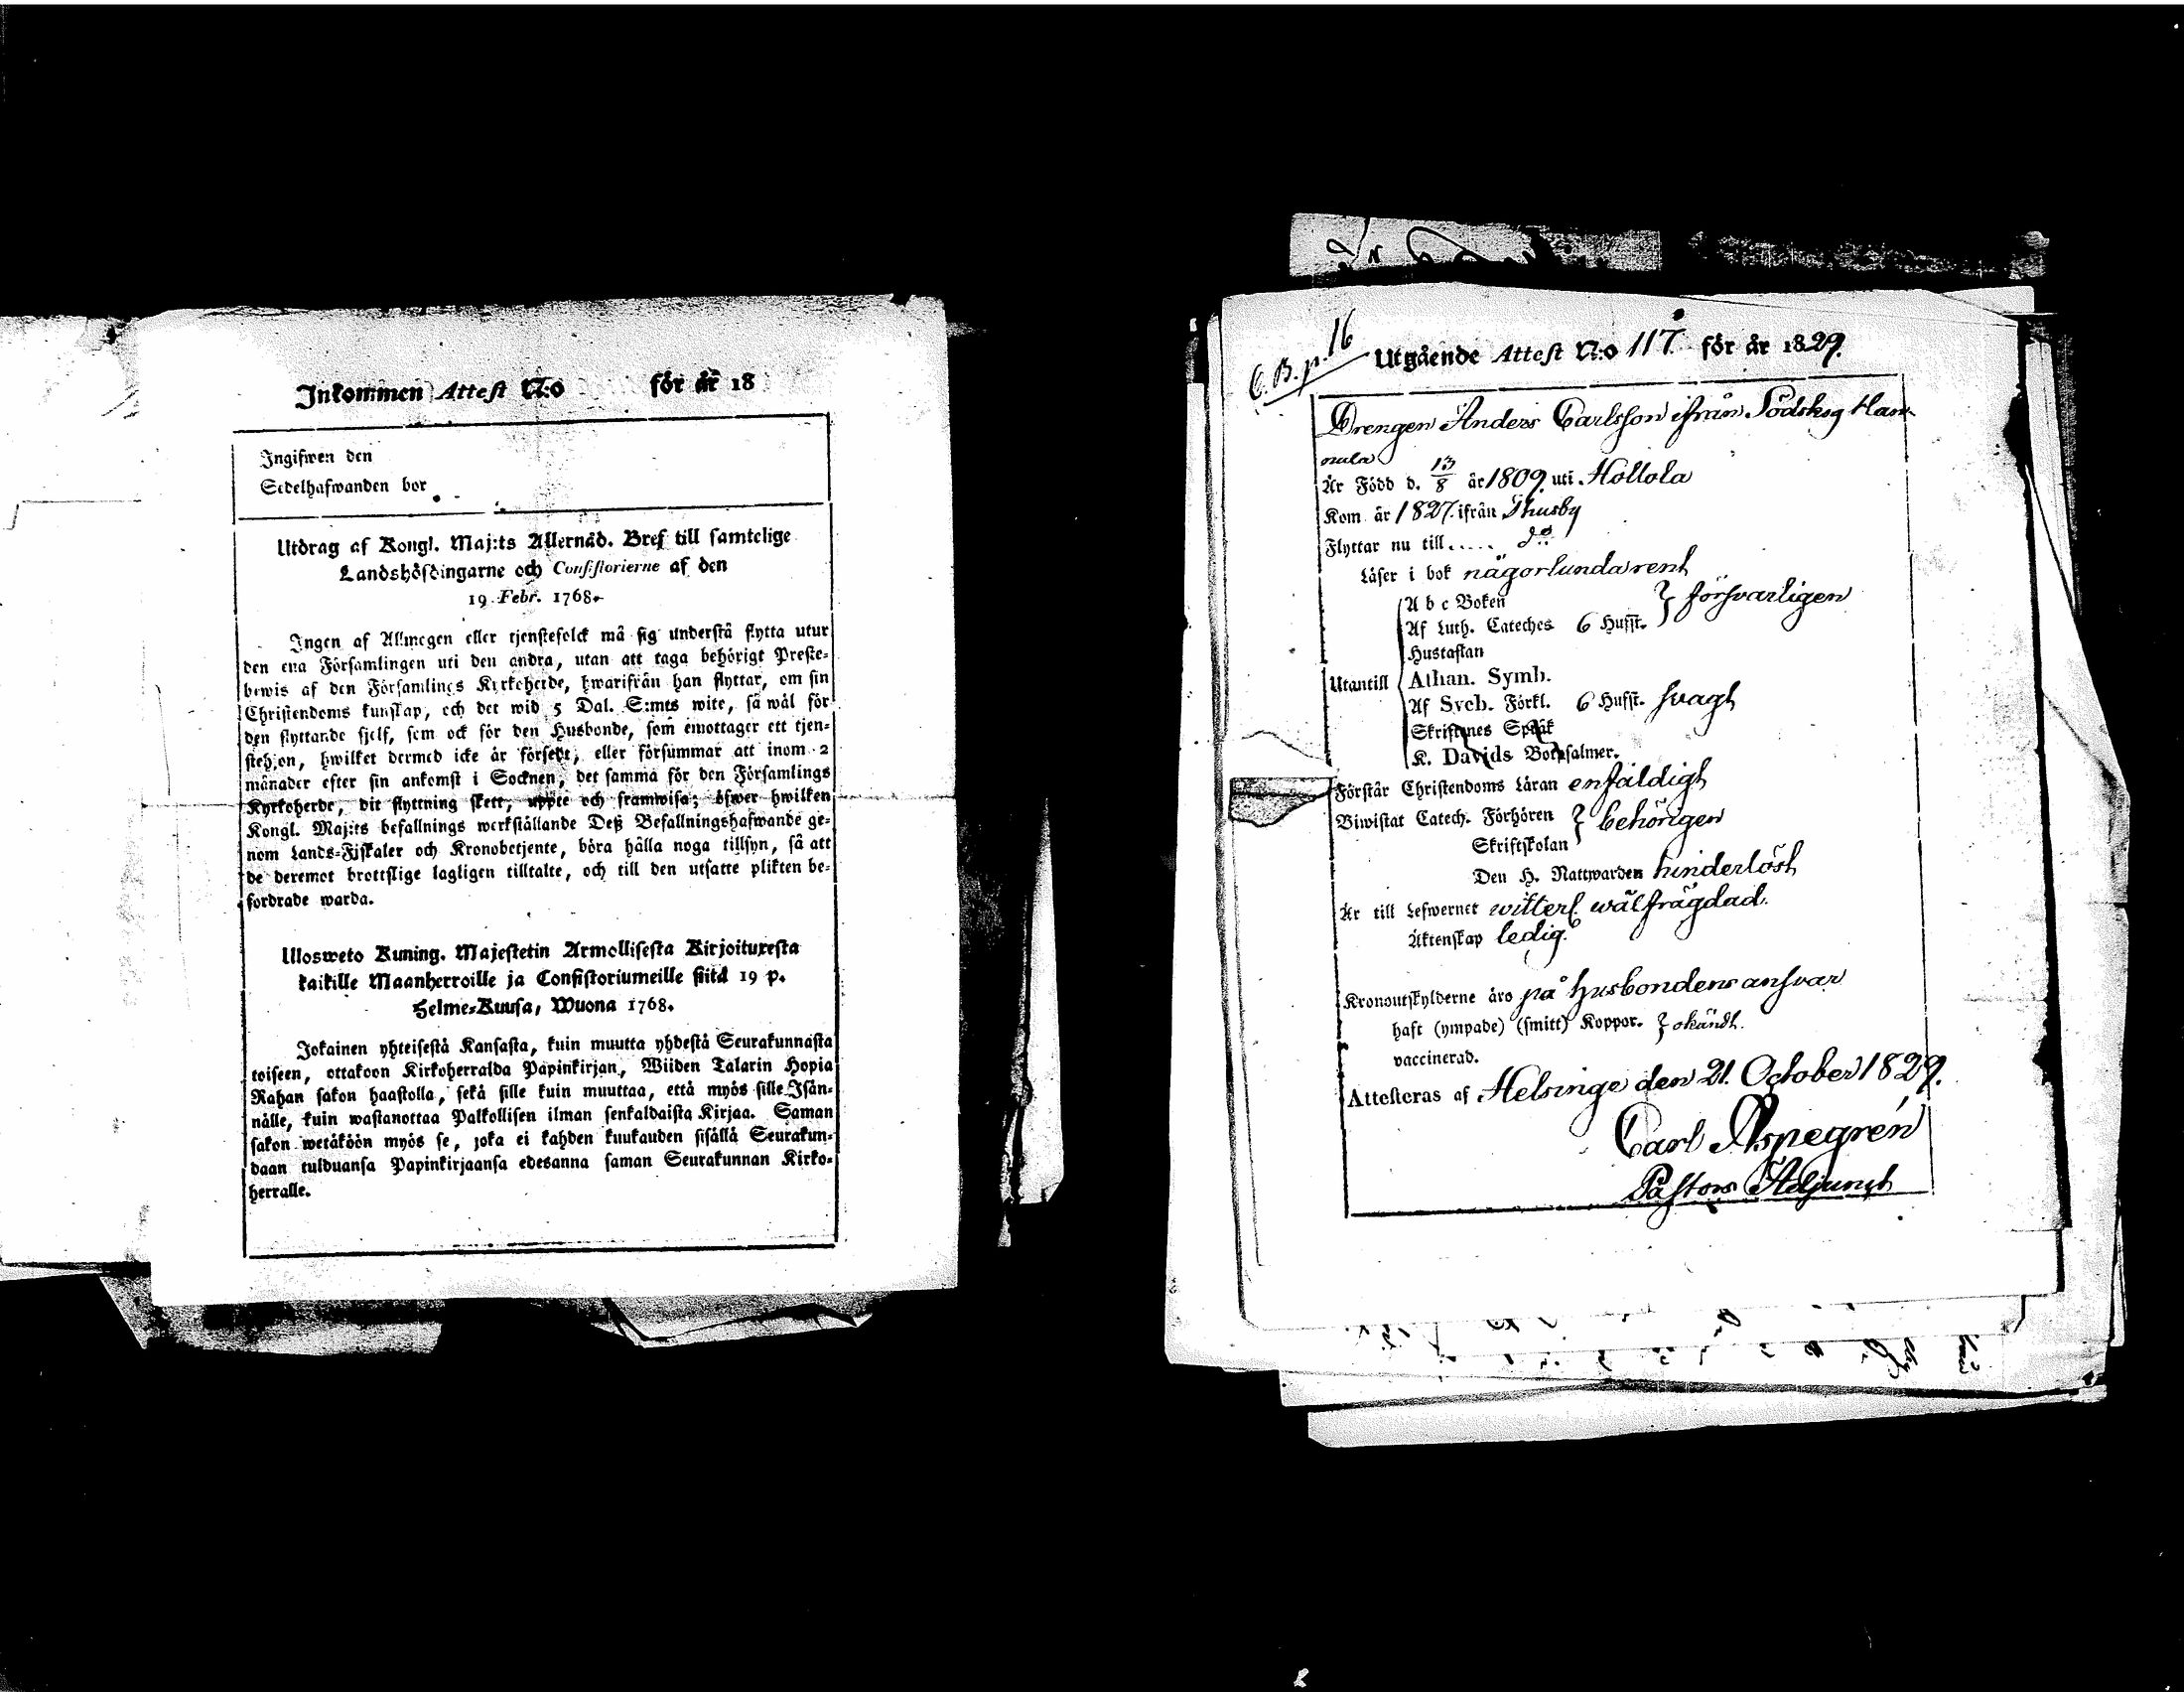 Inkommen Attest N:o för år 18
Ingifwen den
Sedelhafwanden bor
Utdrag af Kongl. Maj:ts Allernåd. Bref till samtelige
Landshöfdingarne och Consistorierne af den
19 Febr. 1768.
Ingen af Allmogen eller tjenstefolck må sig understå flytta utur
den ena Församlingen uti den andra, utan att taga behörigt Preste-
bewis af den Församlings Kyrkoherde, hwarifrån han flyttar, om sin
Christendoms kunskap, och det wid 5 Dal. S:mts wite, så wäl för
den flyttande sjelf, som ock för den Husbonde, som emottager ett tjen-
stehjon, hwilket dermed icke är försedt, eller försummar att inom 2
månader efter sin ankomst i Socknen, det samma för den Församlings
Kyrkoherde, dit flyttning skett, uppte och framwisa; öfwer hwilken
Kongl. Maj:ts befallnings werkställande Deß Befallningshafwande ge-
nom Lands-Fiskaler och Kronobetjente, böra hålla noga tillsyn, så att
de deremot brottslige lagligen tilltalte, och till den utsatte plikten be-
fordrade warda.
Ulosweto Kuning. Majestetin Armollisesta Kirjoituxesta
kaikille Maanherroille ja Consistoriumeille siitä 19 p.
Helme-Kuusa, Wuona 1768.
Jokainen yhteisestä Kansasta, kuin muutta yhdestä Seurakunnasta
toiseen, ottakoon Kirkoherralda Papinkirjan, Wiiden Talarin Hopia
Rahan sakon haastolla, sekä sille kuin muuttaa, että myös sille Isän-
nälle, kuin wastanottaa Palkollisen ilman senkaldaista Kirjaa. Saman
sakon wetäköön myös se, joka ei kahden kuukauden sisällä Seurakun-
daan tulduansa Papinkirjaansa edesanna saman Seurakunnan Kirko-
herralle.
C.B. p. 16
Utgående Attest N:o 117. för år 1829.
Drengen Anders Carlsson ifrån Södskog Han-
nula
Är Född d. 13/8 år 1809. uti Hollola
Kom år 1827. ifrån Thusby
Flyttar nu till..... do
Läser i bok någorlunda rent
A b c Boken } försvarligen
Af Luth. Cateches 6 Husst.
Hustaflan
Utantill Athan. Symb.
Af Sveb. Förkl. 6 Husst. svagt
Skriftenes Språk
K. Davids Botpsalmer.
Förstår Christendoms Läran enfäldigt
Biwistat Catech. Förhören } behörigen
Skriftskolan
Den H. Nattwarden hinderlöst
Är till Lefwernet witterl. wälfrägdad.
Äktenskap ledig.
Kronoutskylderne äro på husbondens ansvar
haft (ympade) (smitt) Koppor. } okändt.
vaccinerad.
Attesteras af Helsinge den 21. October 1829.
Carl Aspegrén
Pastors Adjunct